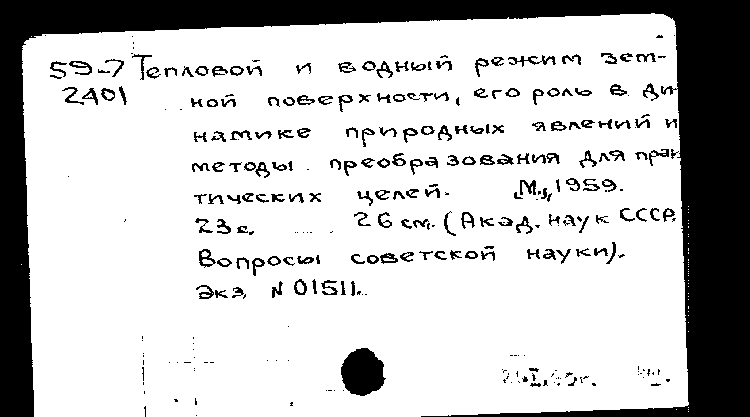 59-7 Тепловой и водный режим зем-
2401 ной поверхности, его роль в ди
намике природных явлений и
методы преобразования для прак
тических целей. М., 1959.
23 с. 26 см. (Акад. наук СССР.
Вопросы советской науки).
Экз. N 01511.